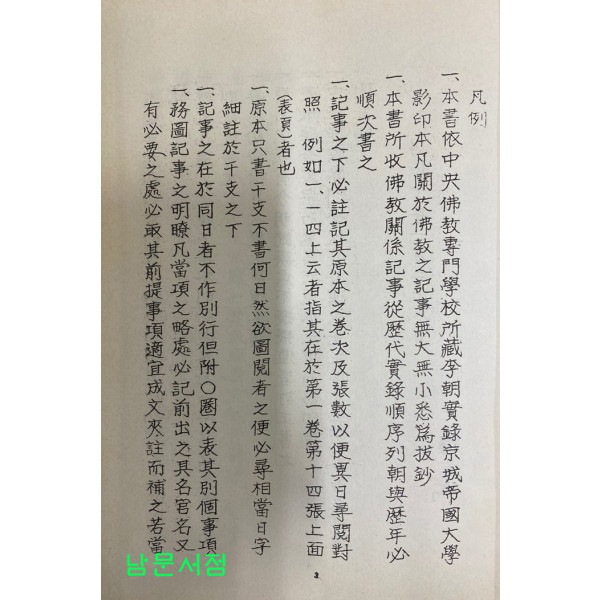 凡例
一、本書依中央佛敎專門學校所藏李朝實錄京城帝國大學
影印本凡關於佛敎之記事無大無小悉爲拔鈔
一、本書所收佛敎關係記事從歷代實錄順序列朝與歷年必
順次書之
一、記事之下必註記其原本之卷次及張數以便異日尋閱對
照 例如一、一四上云者指其在於第一卷第十四張上面
(表頁)者也
一、原本只書干支不書何日然欲圖閱者之便必尋相當日字
細註於干支之下
一、記事之在於同日者不作別行但附○圈以表其別個事項
一、務圖記事之明瞭凡當項之略處必記前出之具名官名又
有必要之處必取其前提事項適宜成文夾註而補之若當
2
남문서점